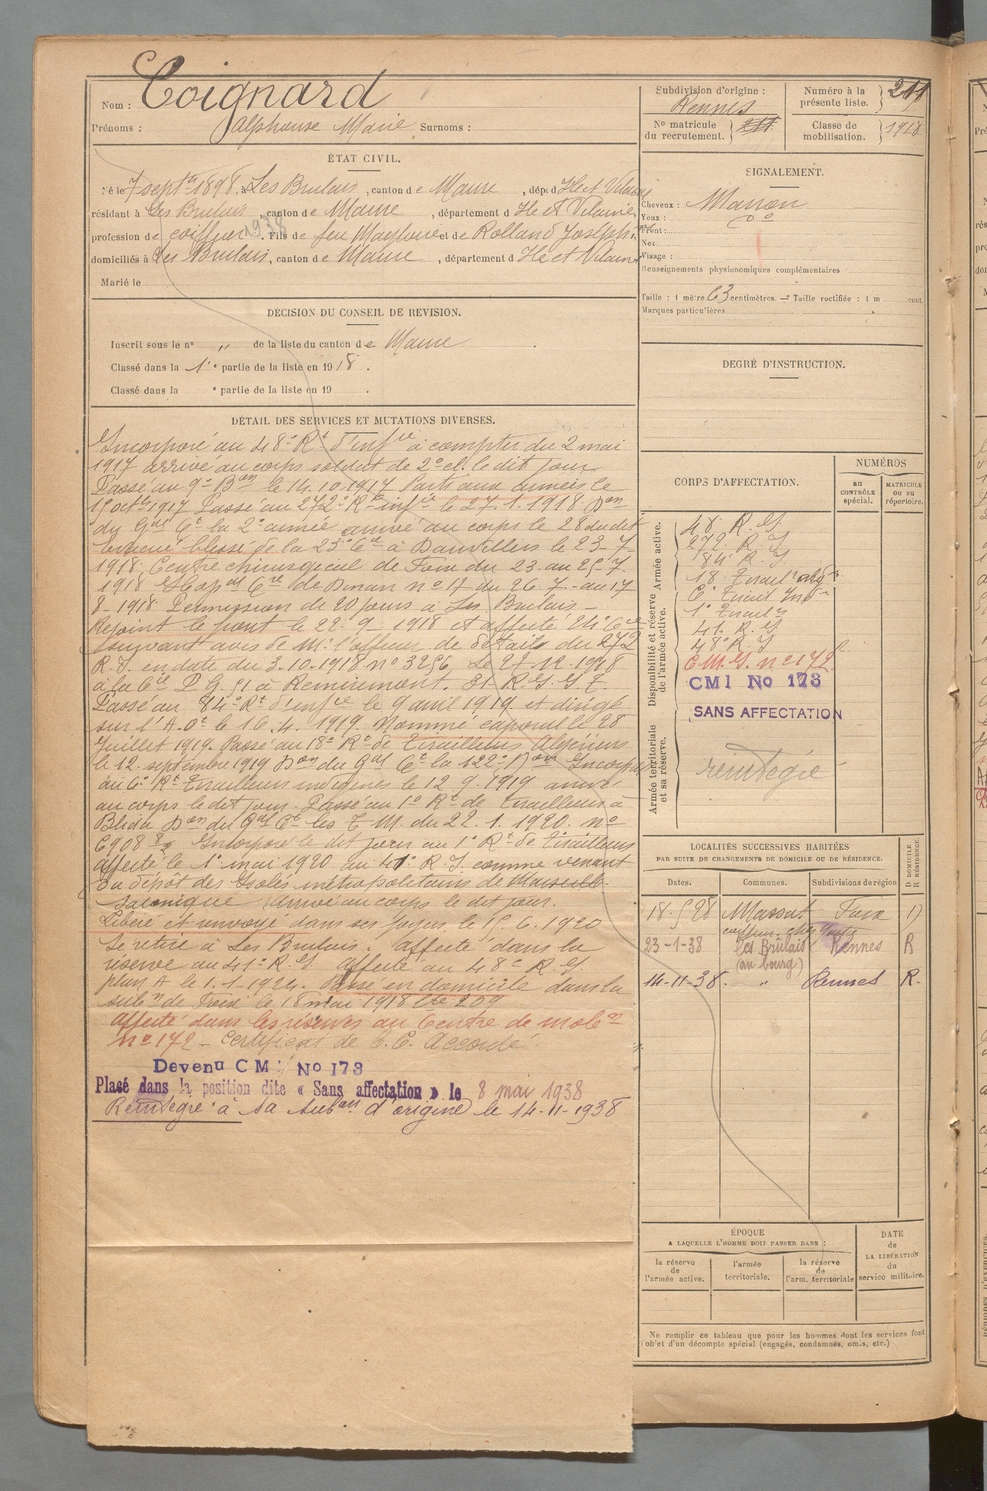 Nom : Coignard
Prénoms : Alphonse Marie Surnoms :
ÉTAT CIVIL.
Né le 7 septbre 1898, à Les Brulais, canton de Maure, dépt d'Ille et Vilaine
résidant à Les Brulais, canton de Maure, département d'Ille et Vilaine
profession de coiffeur 1938. Fils de feu Magloire et de Rolland Joseph
domiciliés à Les Brulais, canton de Maure, département d'Ille et Vilaine
Marié le
DÉCISION DU CONSEIL DE REVISION.
Inscrit sous le n° " de la liste du canton de Maure
Classé dans la 1re partie de la liste en 1918.
Classé dans la e partie de la liste en 19 .
DÉTAIL DES SERVICES ET MUTATIONS DIVERSES.
Incorporé au 48e Rt d'infrie à compter du 2 mai
1917 arrivé au corps soldat de 2e cl. le dit jour
Passé au 9e Bon le 14.10.1917 Parti aux armées le
15 octbre 1917 Passé au 272e Rt infie le 27.1.1918 Don
du Gal Ct la 2e armée arrivé au corps le 28 du dit
Evacué blessé de la 23e Cie à Dauvillers le 23-7-
1918. Centre chirurgical de du 23 au 25-7
1918 Hopal Cre de Dinan n° 17 du 26.7.-au 17
8-1918 Permission de 20 jours à Les Brulais -
Rejoint le front le 22.9.1918 et affecté 24e Cie
suivant avis de M. l'officier de détails du 272
R.I. en date du 3.10.1918 n° 3256 Le 27-12-1918
à la Cie P.G. 51 à Remiremont. 31 R.I.
Passé au 84e Rt d'infie le 9 avril 1919 et dirigé
sur l'A.O. le 16.4.1919 Nommé caporal le 28
Juillet 1919. Passé au 18e Rt de Tirailleurs Algériens
le 12 septembre 1919 Don du Gal Ct la 122e Don Incorporé
au 6e Rt Tirailleurs indigènes le 12.9.1919 arrivé
au corps le dit jour. Passé au 1er Rt de Tirailleurs à
Blida Don du Gal Ct les T.M. du 22.1.1920. n°
6908 Incorporé le dit jour au 1er Rt de Tirailleurs
affecté le 1er mai 1920 au 41e R.I. comme venant
du dépôt des Isolés métropolitains de Marseille
Salonique Arrivé au corps le dit jour.
Libéré et renvoyé dans ses foyers le 15.6.1920
Se retire à Les Brulais. Affecté dans la
réserve au 41e R.I. Affecté au 48e R.I.
plan A le 1.1.1924. Passé en domicile dans la
subon de Foix le 18 mai 1918
Affecté dans les réserves au Centre de mobon
n° 172 - Certificat de accordé.
Devenu CMI No 173
Placé dans la position dite « Sans affectation » le 8 mai 1938
Réintégré à sa subon d'origine le 14-11-1938
Subdivision d'origine :
Rennes
Numéro à la présente liste. 211
No matricule du recrutement. 211
Classe de mobilisation. 1918
SIGNALEMENT.
Cheveux : Marron
Yeux : do
Front :
Nez
Visage :
Renseignements physionomiques complémentaires
Taille : 1 mètre 63 centimètres. — Taille rectifiée : 1 m cent.
Marques particulières
DEGRÉ D'INSTRUCTION.
CORPS D'AFFECTATION.
NUMÉROS
AU CONTRÔLE spécial.
MATRICULE OU AU répertoire.
Armée active.
Disponibilité et réserve de l'armée active.
Armée territoriale et sa réserve.
48 R.I
272 R.I
84 R.I
18 Tiraillrs alg
6e Tiraill Ind
1er Tiraillrs
41. R.I
48e R.I
C.M.I. n° 172
CMI No 173
SANS AFFECTATION
réintégré
LOCALITÉS SUCCESSIVES HABITÉES
PAR SUITE DE CHANGEMENTS DE DOMICILE OU DE RÉSIDENCE.
D DOMICILE R RÉSIDENCE.
Dates. Communes. Subdivisions de région
18.5.28 Massat Foix D
coiffeur
23-1-38 Les Brûlais Rennes R
(au bourg)
14-11-38. " Rennes R.
ÉPOQUE
A LAQUELLE L'HOMME DOIT PASSER DANS :
DATE de LA LIBÉRATION du service militaire.
la réserve de l'armée active.
l'armée territoriale.
la réserve de l'arm. territoriale
Ne remplir ce tableau que pour les hommes dont les services font
l'objet d'un décompte spécial (engagés, condamnés, omis, etc.)